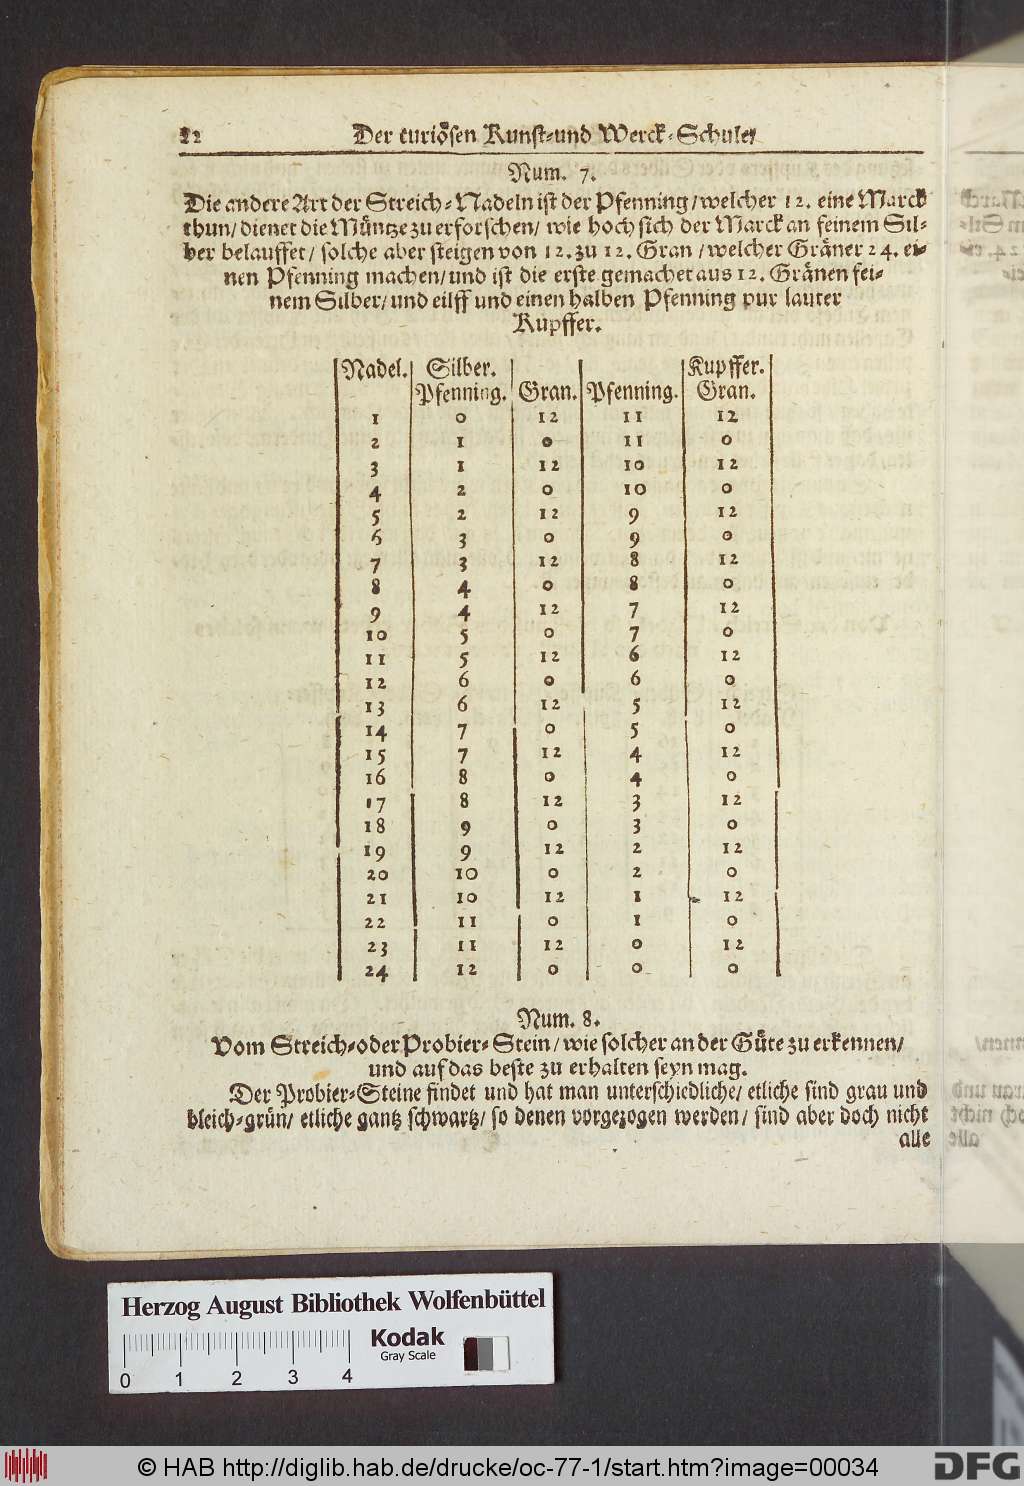 12 Der curiösen Kunst-und Werck-Schule/
Num. 7.
Die andere Art der Streich-Nadeln ist der Pfenning/welcher 12. eine Marck
thun/dienet die Müntze zu erforschen/ wie hoch sich der Marck an feinem Sil-
ber belauffet/ solche aber steigen von 12. zu 12. Gran/welcher Gräner 24. ei-
nen Pfenning machen/und ist die erste gemachet aus 12. Gränen fei-
nem Silber/und eilff und einen halben Pfenning pur lauter
Kupffer.
Nadel. Silber. Kupffer.
Pfenning. Gran. Pfenning. Gran.
1 0 12 11 12
2 1 0 11 0
3 1 12 10 12
4 2 0 10 0
5 2 12 9 12
6 3 0 9 0
7 3 12 8 12
8 4 0 8 0
9 4 12 7 12
10 5 0 7 0
11 5 12 6 12
12 6 0 6 0
13 6 12 5 12
14 7 0 5 0
15 7 12 4 12
16 8 0 4 0
17 8 12 3 12
18 9 0 3 0
19 9 12 2 12
20 10 0 2 0
21 10 12 1 12
22 11 0 1 0
23 11 12 0 12
24 12 0 0 0
Num. 8.
Vom Streich-oder Probier-Stein/wie solcher an der Güte zu erkennen/
und auf das beste zu erhalten seyn mag.
Der Probier-Steine findet und hat man unterschiedliche/ etliche sind grau und
bleich-grün/ etliche gantz schwartz/ so denen vorgezogen werden/ sind aber doch nicht
alle
Herzog August Bibliothek Wolfenbüttel
Kodak
Gray Scale
0 1 2 3 4
© HAB http://diglib.hab.de/drucke/oc-77-1/start.htm?image=00034
DFG